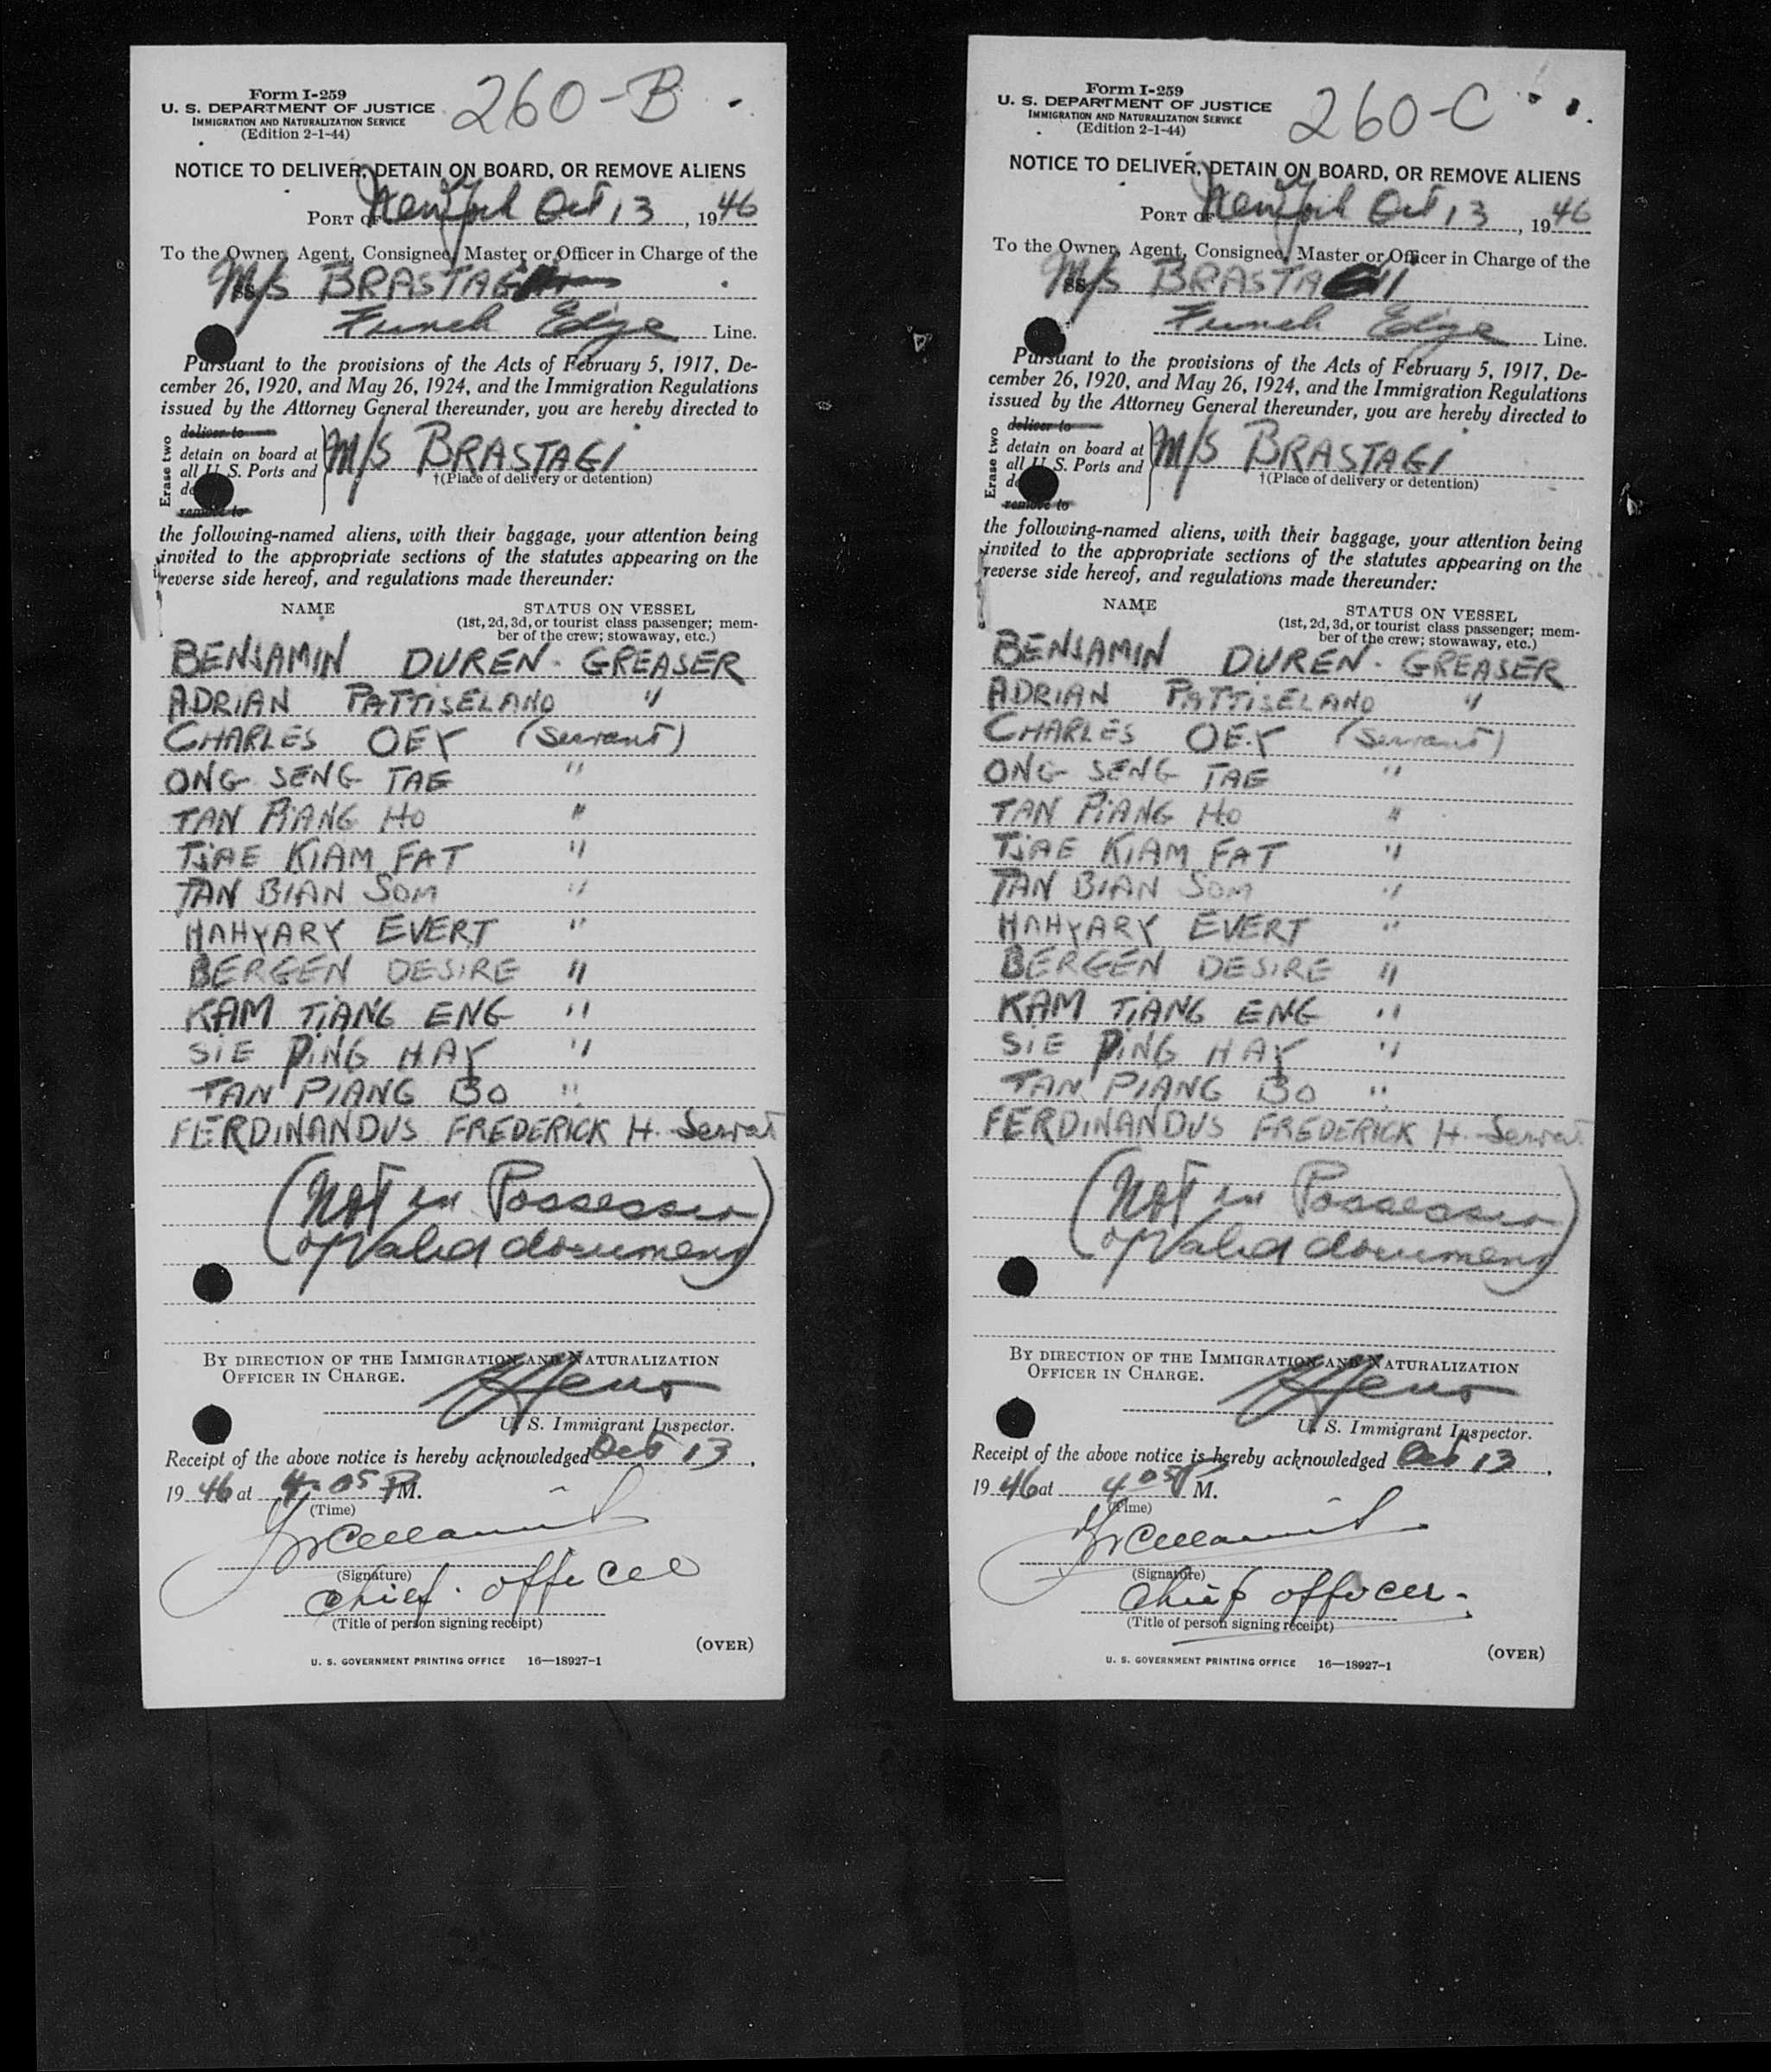 Form I-259
U. S. DEPARTMENT OF JUSTICE
IMMIGRATION AND NATURALIZATION SERVICE
(Edition 2-1-44)
260-B
NOTICE TO DELIVER, DETAIN ON BOARD, OR REMOVE ALIENS
PORT OF New York Oct 13, 1946
To the Owner, Agent, Consignee, Master or Officer in Charge of the
M/S BRASTAGI
Funch Edye Line.
Pursuant to the provisions of the Acts of February 5, 1917, De-
cember 26, 1920, and May 26, 1924, and the Immigration Regulations
issued by the Attorney General thereunder, you are hereby directed to
Erase two
deliver to
detain on board at
all U. S. Ports and
remove to
M/S BRASTAGI
†(Place of delivery or detention)
the following-named aliens, with their baggage, your attention being
invited to the appropriate sections of the statutes appearing on the
reverse side hereof, and regulations made thereunder:
NAME STATUS ON VESSEL
(1st, 2d, 3d, or tourist class passenger; mem-
ber of the crew; stowaway, etc.)
BENJAMIN DUREN - GREASER
ADRIAN PATTISELANO "
CHARLES OEY (Servant)
ONG SENG TAE "
TAN PIANG HO "
TJAE KIAM FAT "
TAN BIAN SOM "
HAHYARY EVERT "
BERGEN DESIRE "
KAM TIANG ENG "
SIE PING HAY "
TAN PIANG BO "
FERDINANDUS FREDERICK H. Servat
(Not in Possession
of Valid document)
BY DIRECTION OF THE IMMIGRATION AND NATURALIZATION
OFFICER IN CHARGE.
U. S. Immigrant Inspector.
Receipt of the above notice is hereby acknowledged Oct 13,
1946 at 4.05 PM.
(Time)
(Signature)
Chief officer
(Title of person signing receipt)
(OVER)
U. S. GOVERNMENT PRINTING OFFICE 16—18927-1
Form I-259
U. S. DEPARTMENT OF JUSTICE
IMMIGRATION AND NATURALIZATION SERVICE
(Edition 2-1-44)
260-C
NOTICE TO DELIVER, DETAIN ON BOARD, OR REMOVE ALIENS
PORT OF New York Oct 13, 1946
To the Owner, Agent, Consignee, Master or Officer in Charge of the
M/S BRASTAGI
Funch Edye Line.
Pursuant to the provisions of the Acts of February 5, 1917, De-
cember 26, 1920, and May 26, 1924, and the Immigration Regulations
issued by the Attorney General thereunder, you are hereby directed to
Erase two
deliver to
detain on board at
all U. S. Ports and
remove to
M/S BRASTAGI
†(Place of delivery or detention)
the following-named aliens, with their baggage, your attention being
invited to the appropriate sections of the statutes appearing on the
reverse side hereof, and regulations made thereunder:
NAME STATUS ON VESSEL
(1st, 2d, 3d, or tourist class passenger; mem-
ber of the crew; stowaway, etc.)
BENJAMIN DUREN - GREASER
ADRIAN PATTISELANO "
CHARLES OEY (Servant)
ONG SENG TAE "
TAN PIANG HO "
TJAE KIAM FAT "
TAN BIAN SOM "
HAHYARY EVERT "
BERGEN DESIRE "
KAM TIANG ENG "
SIE PING HAY "
TAN PIANG BO "
FERDINANDUS FREDERICK H. Servat
(Not in Possession
of Valid document)
BY DIRECTION OF THE IMMIGRATION AND NATURALIZATION
OFFICER IN CHARGE.
U. S. Immigrant Inspector.
Receipt of the above notice is hereby acknowledged Oct 13,
1946 at 4 05 P M.
(Time)
(Signature)
Chief officer.
(Title of person signing receipt)
(OVER)
U. S. GOVERNMENT PRINTING OFFICE 16—18927-1